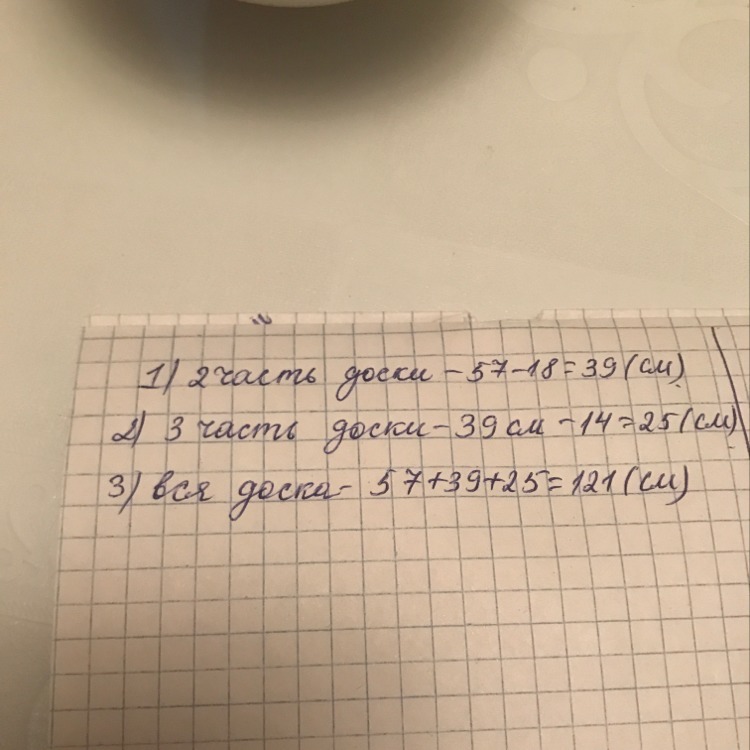 1) 2 часть доски - 57-18=39 (см)
2) 3 часть доски - 39 см - 14=25 (см)
3) вся доска - 57+39+25=121 (см)